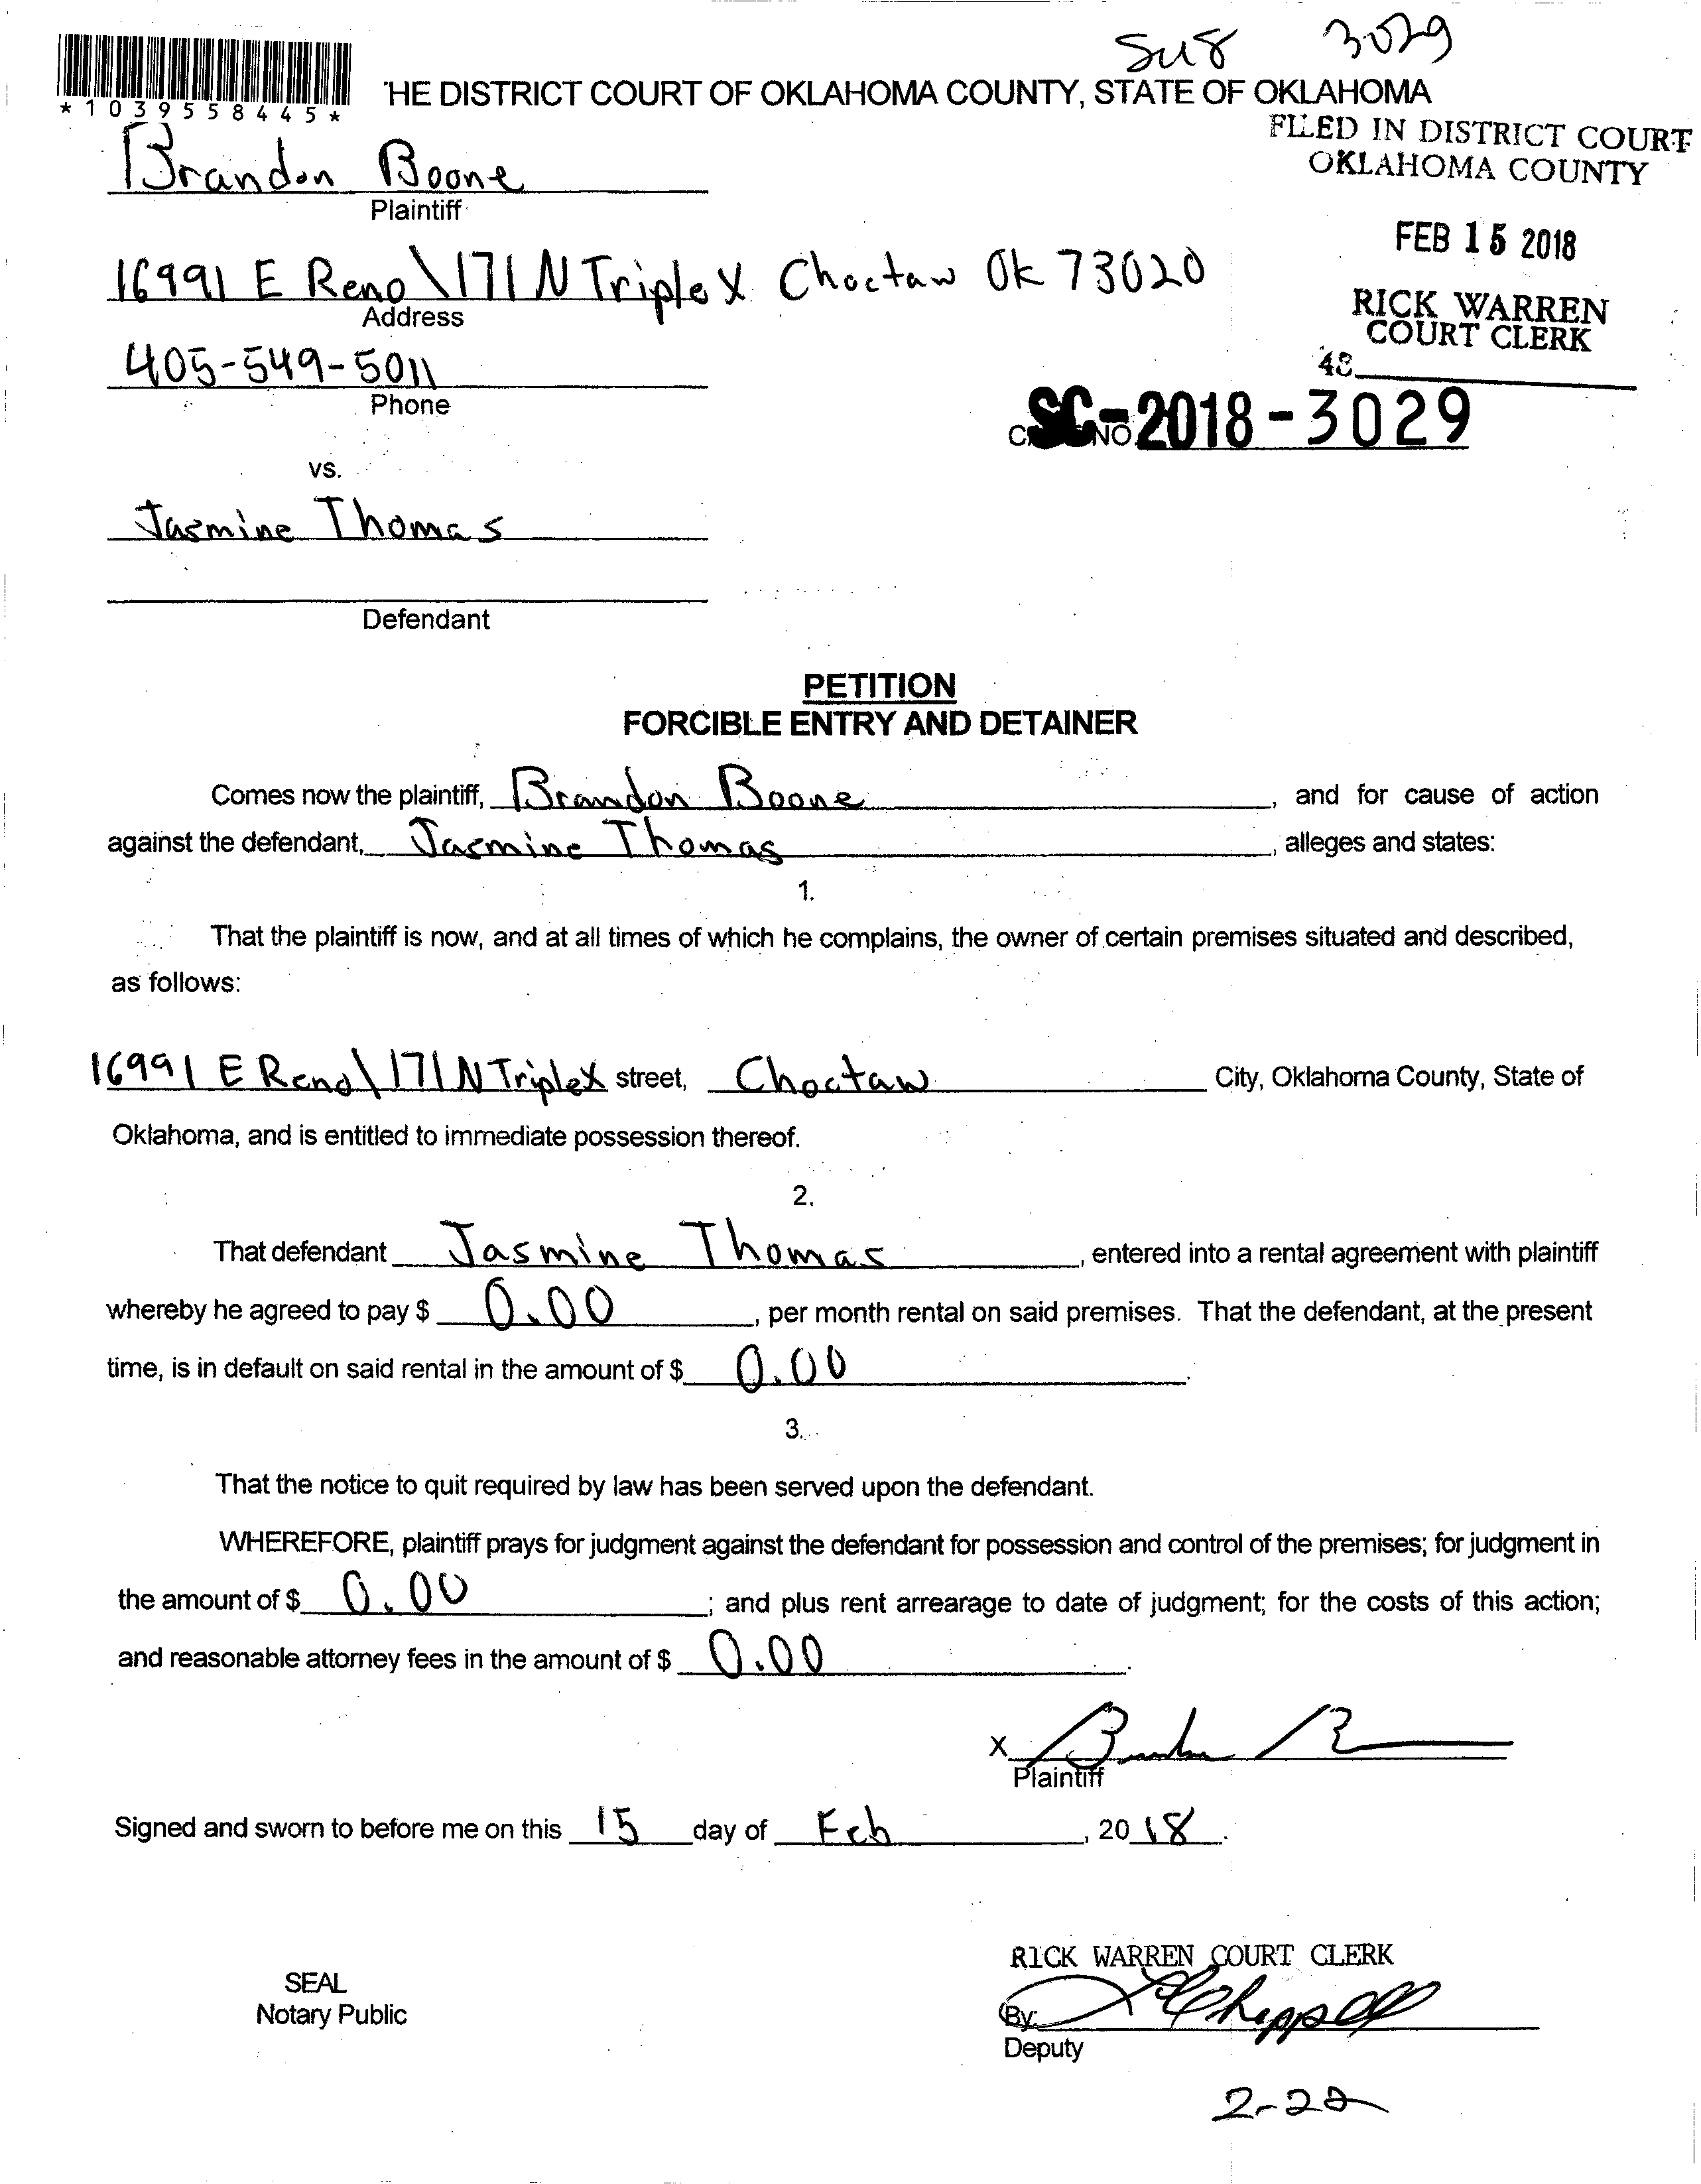 Su8 3029
*1039558445*
HE DISTRICT COURT OF OKLAHOMA COUNTY, STATE OF OKLAHOMA
FILED IN DISTRICT COURT
OKLAHOMA COUNTY
Brandon Boone
Plaintiff
FEB 15 2018
16991 E Reno\171 N Triple X Choctaw Ok 73020
Address
RICK WARREN
COURT CLERK
48
405-549-5011
Phone
SC-2018-3029
vs.
Jasmine Thomas
Defendant
PETITION
FORCIBLE ENTRY AND DETAINER
Comes now the plaintiff, Brandon Boone, and for cause of action
against the defendant, Jasmine Thomas, alleges and states:
1.
That the plaintiff is now, and at all times of which he complains, the owner of certain premises situated and described,
as follows:
16991 E Reno\171 N Triplex street, Choctaw City, Oklahoma County, State of
Oklahoma, and is entitled to immediate possession thereof.
2.
That defendant Jasmine Thomas, entered into a rental agreement with plaintiff
whereby he agreed to pay $ 0.00, per month rental on said premises. That the defendant, at the present
time, is in default on said rental in the amount of $ 0.00.
3.
That the notice to quit required by law has been served upon the defendant.
WHEREFORE, plaintiff prays for judgment against the defendant for possession and control of the premises; for judgment in
the amount of $ 0.00; and plus rent arrearage to date of judgment; for the costs of this action;
and reasonable attorney fees in the amount of $ 0.00.
X
Plaintiff
Signed and sworn to before me on this 15 day of Feb, 2018.
RICK WARREN COURT CLERK
SEAL
Notary Public
By:
Deputy
2-22